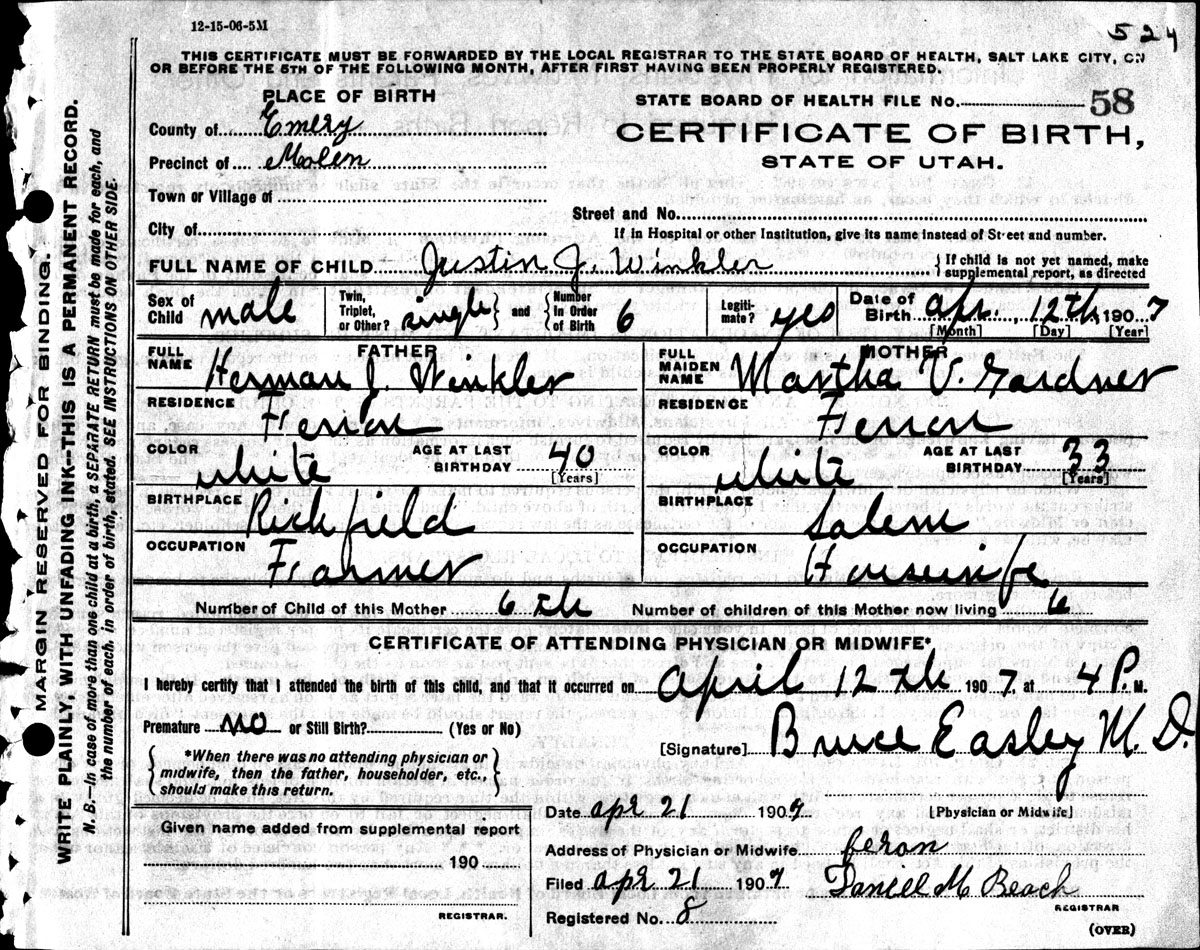 12-15-06-5M
524
THIS CERTIFICATE MUST BE FORWARDED BY THE LOCAL REGISTRAR TO THE STATE BOARD OF HEALTH, SALT LAKE CITY, ON
OR BEFORE THE 5TH OF THE FOLLOWING MONTH, AFTER FIRST HAVING BEEN PROPERLY REGISTERED.
PLACE OF BIRTH
STATE BOARD OF HEALTH FILE No. 58
County of Emery
CERTIFICATE OF BIRTH,
Precinct of Molen
STATE OF UTAH.
Town or Village of
Street and No.
City of
If in Hospital or other Institution, give its name instead of Street and number.
FULL NAME OF CHILD Justin J. Winkler { If child is not yet named, make supplemental report, as directed
Sex of Child male Twin, Triplet, or Other? single } and { Number in Order of Birth 6 Legitimate? yes Date of Birth Apr. 12th 1907
[Month] [Day] [Year]
FATHER
FULL NAME Herman J. Winkler
RESIDENCE Ferron
COLOR white AGE AT LAST BIRTHDAY 40 [Years]
BIRTHPLACE Richfield
OCCUPATION Farmer
MOTHER
FULL MAIDEN NAME Martha V. Gardner
RESIDENCE Ferron
COLOR white AGE AT LAST BIRTHDAY 33 [Years]
BIRTHPLACE Salem
OCCUPATION Housewife
Number of Child of this Mother 6th Number of children of this Mother now living 6
CERTIFICATE OF ATTENDING PHYSICIAN OR MIDWIFE*
I hereby certify that I attended the birth of this child, and that it occurred on April 12th 1907, at 4 P. M.
Premature no or Still Birth? (Yes or No)
{ *When there was no attending physician or midwife, then the father, householder, etc., should make this return. }
[Signature] Bruce Easley M. D.
[Physician or Midwife]
Date Apr 21 1907
Given name added from supplemental report
190
REGISTRAR.
Address of Physician or Midwife feron
Filed Apr 21 1907 Daniell M Beach
REGISTRAR
Registered No. 8
(OVER)
MARGIN RESERVED FOR BINDING.
WRITE PLAINLY, WITH UNFADING INK--THIS IS A PERMANENT RECORD.
N. B.--In case of more than one child at a birth, a SEPARATE RETURN must be made for each, and
the number of each, in order of birth, stated. SEE INSTRUCTIONS ON OTHER SIDE.